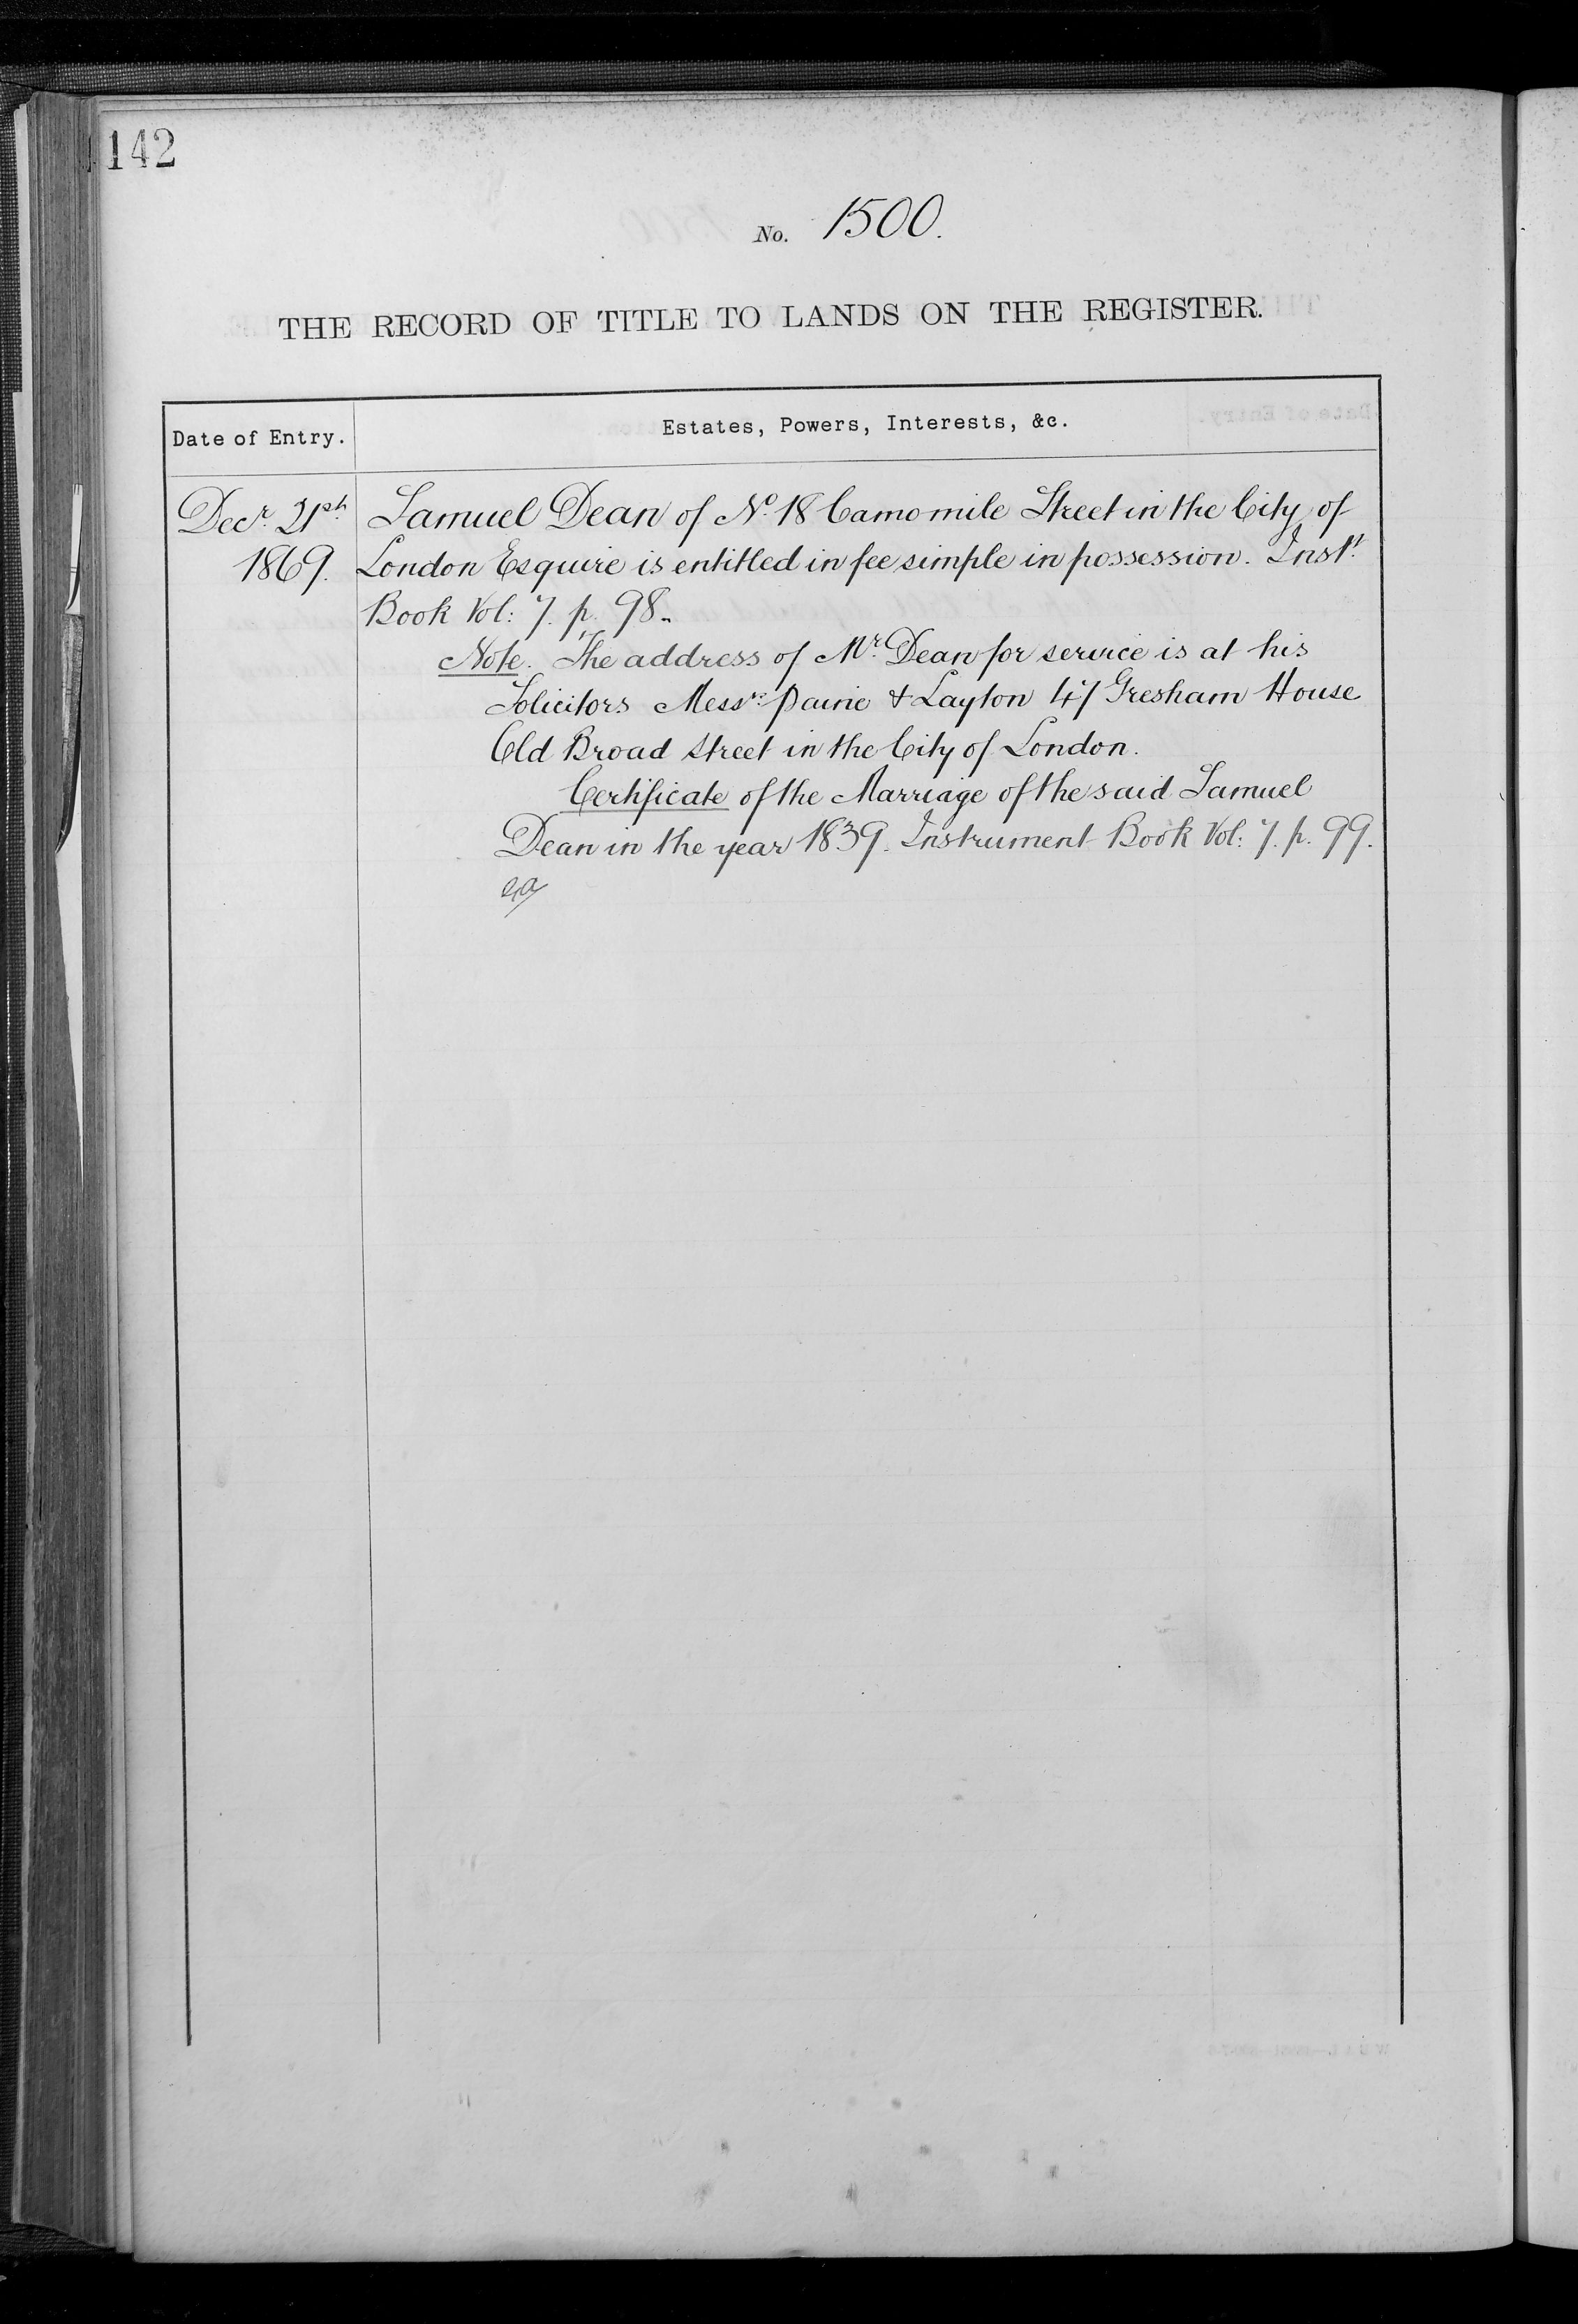 142
No. 1500.
THE RECORD OF TITLE TO LANDS ON THE REGISTER.
Date of Entry.
Estates, Powers, Interests, &c.
Decr. 21st
1869.
Samuel Dean of No. 18 Camomile Street in the City of
London Esquire is entitled in fee simple in possession. Inst.
Book Vol: 7. p. 98.
Note. The address of Mr. Dean for service is at his
Solicitors Messrs. Paine & Layton 47 Gresham House
Old Broad Street in the City of London.
Certificate of the Marriage of the said Samuel
Dean in the year 1839. Instrument Book Vol: 7. p. 99.